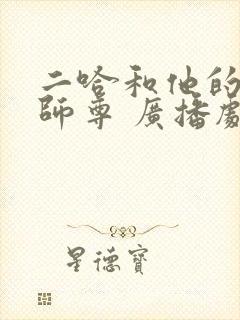 二哈和他的
師尊 廣播劇
星德寶